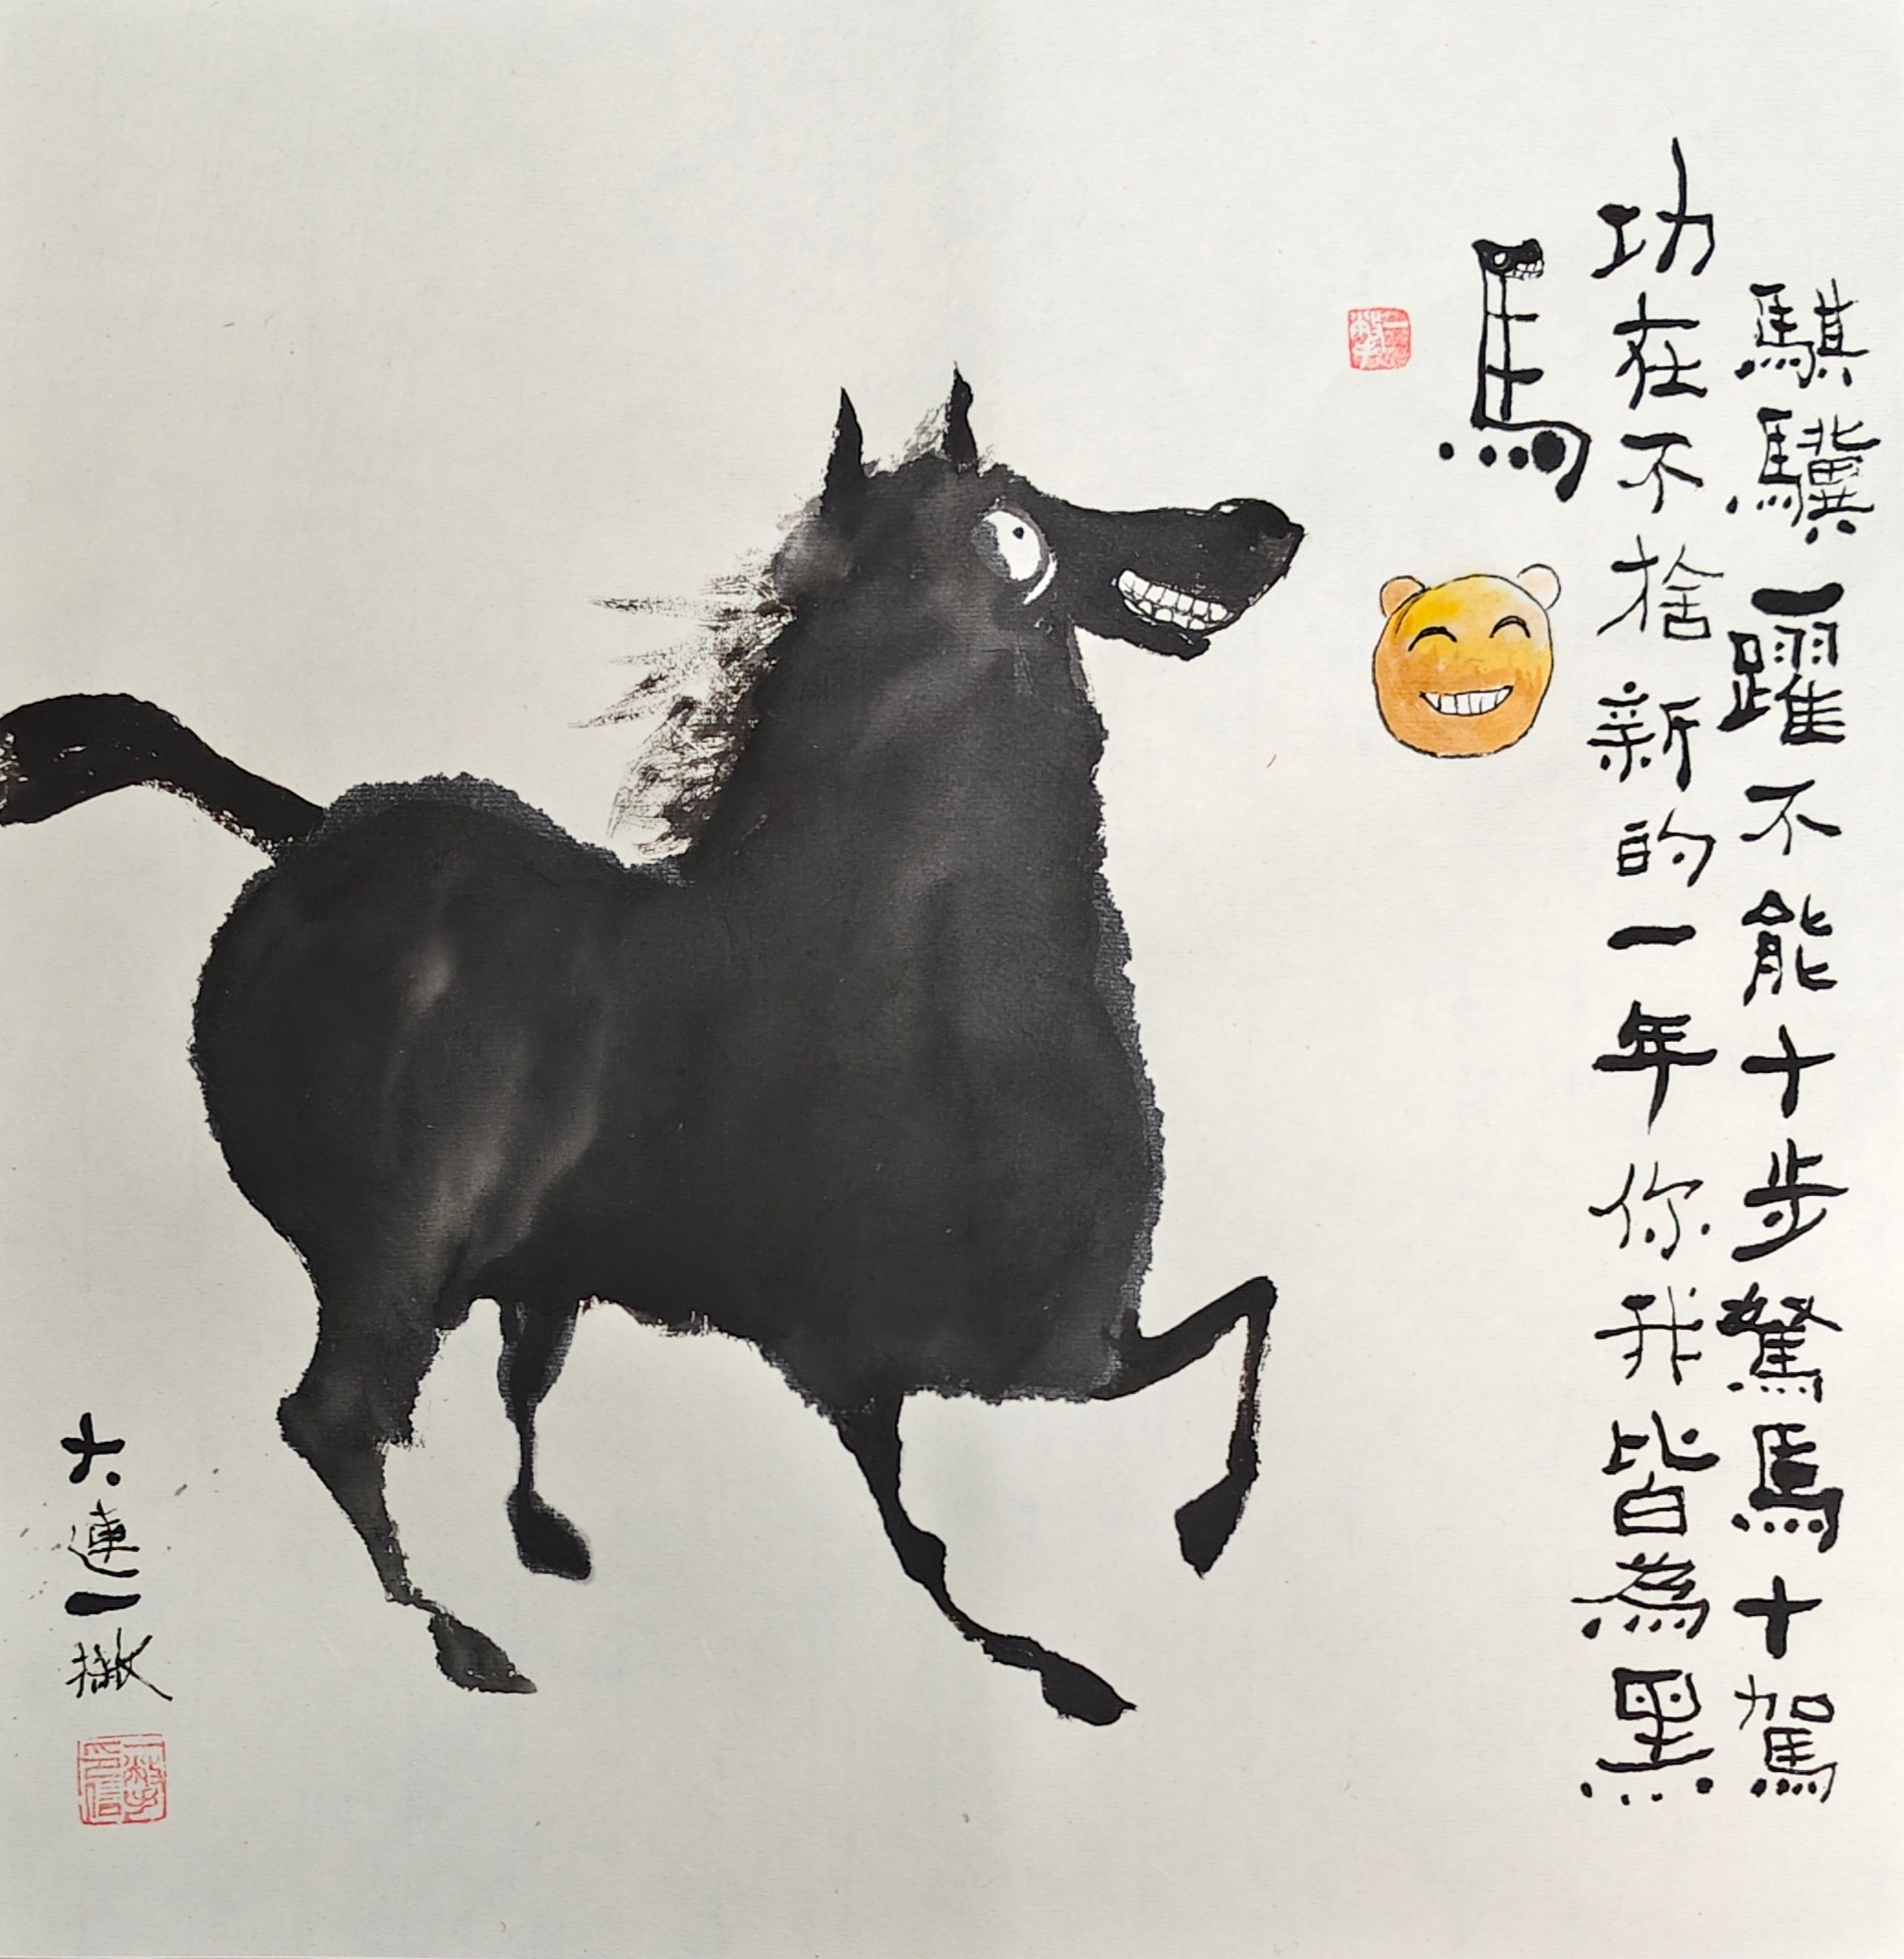 騏驥一躍不能十步駑馬十駕
功在不捨新的一年你我皆為黑
馬
大連一撇